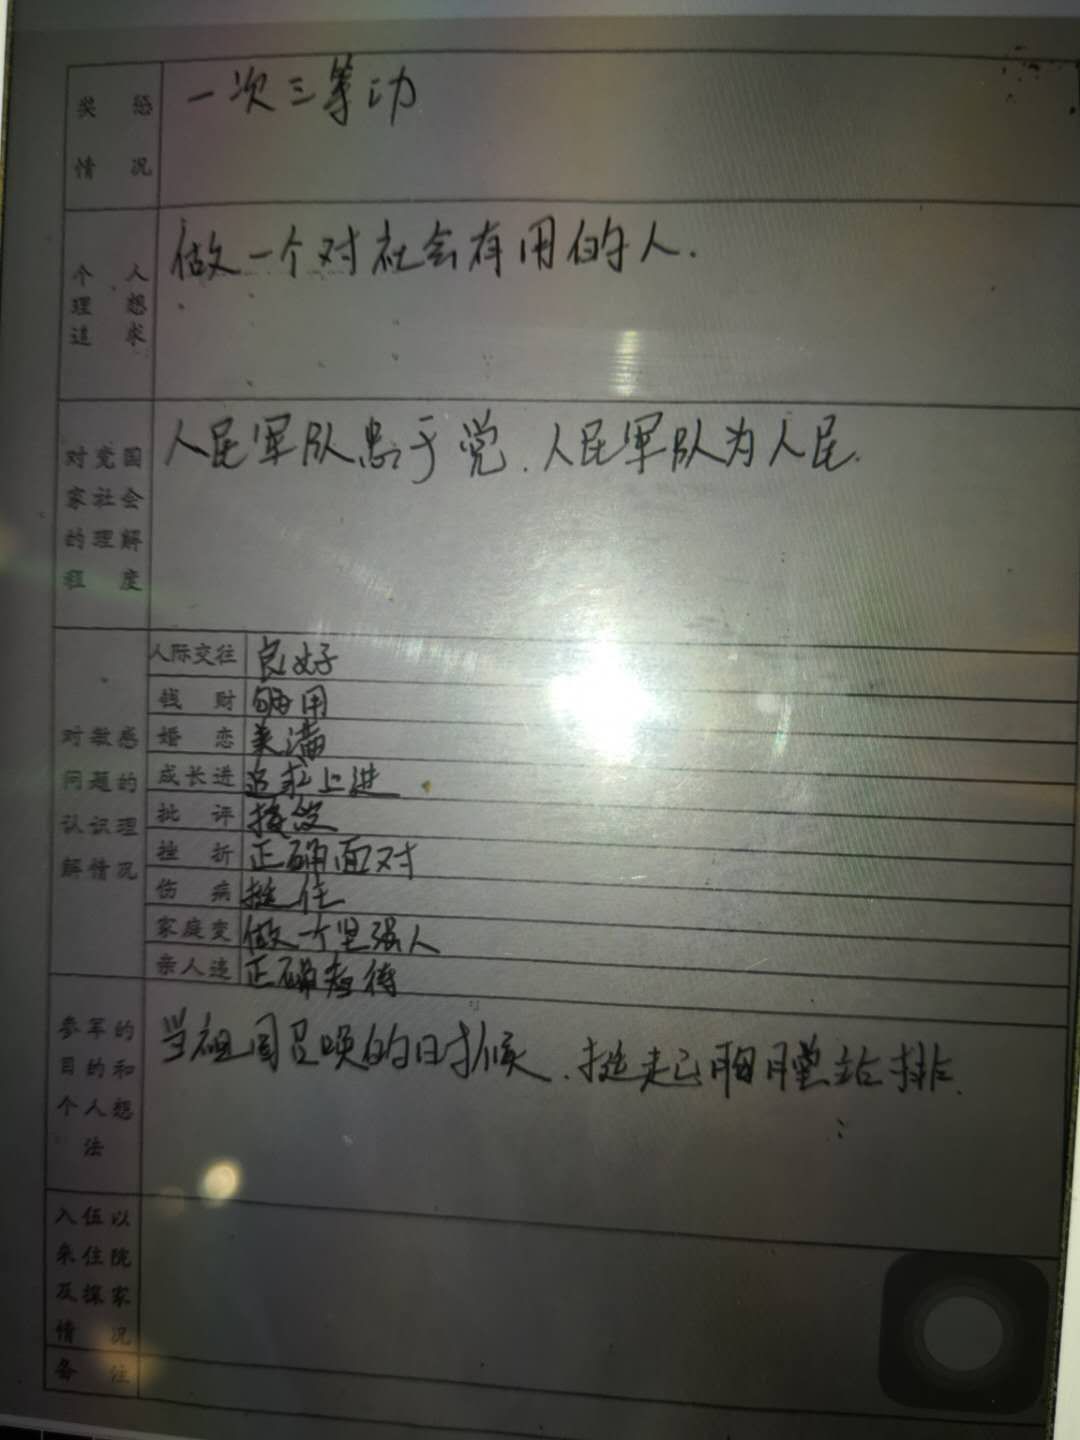 奖惩 一次三等功
情况
个人 做一个对社会有用的人.
理想
追求
对党国 人民军队忠于党.人民军队为人民.
家社会
的理解
程度
人际交往 良好
钱财 够用
对敏感 婚恋 美满
问题的 成长进 追求上进
认识理 批评 接受
解情况 挫折 正确面对
伤病 挺住
家庭变 做一个坚强人
亲人逝 正确看待
参军的 当祖国召唤的时候.挺起胸膛站排.
目的和
个人想
法
入伍以
来住院
及探家
情况
备注